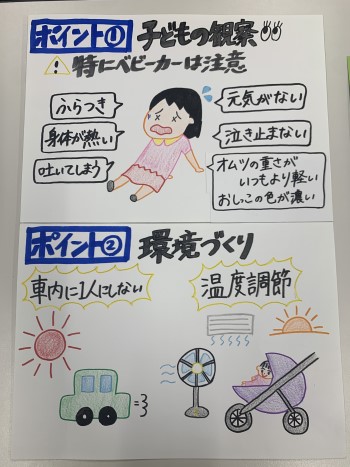 ポイント① 子どもの観察
特にベビーカーは注意
ふらつき
身体が熱い
吐いてしまう
元気がない
泣き止まない
オムツの重さが
いつもより軽い
おしっこの色が濃い
ポイント② 環境づくり
車内に1人にしない
温度調節